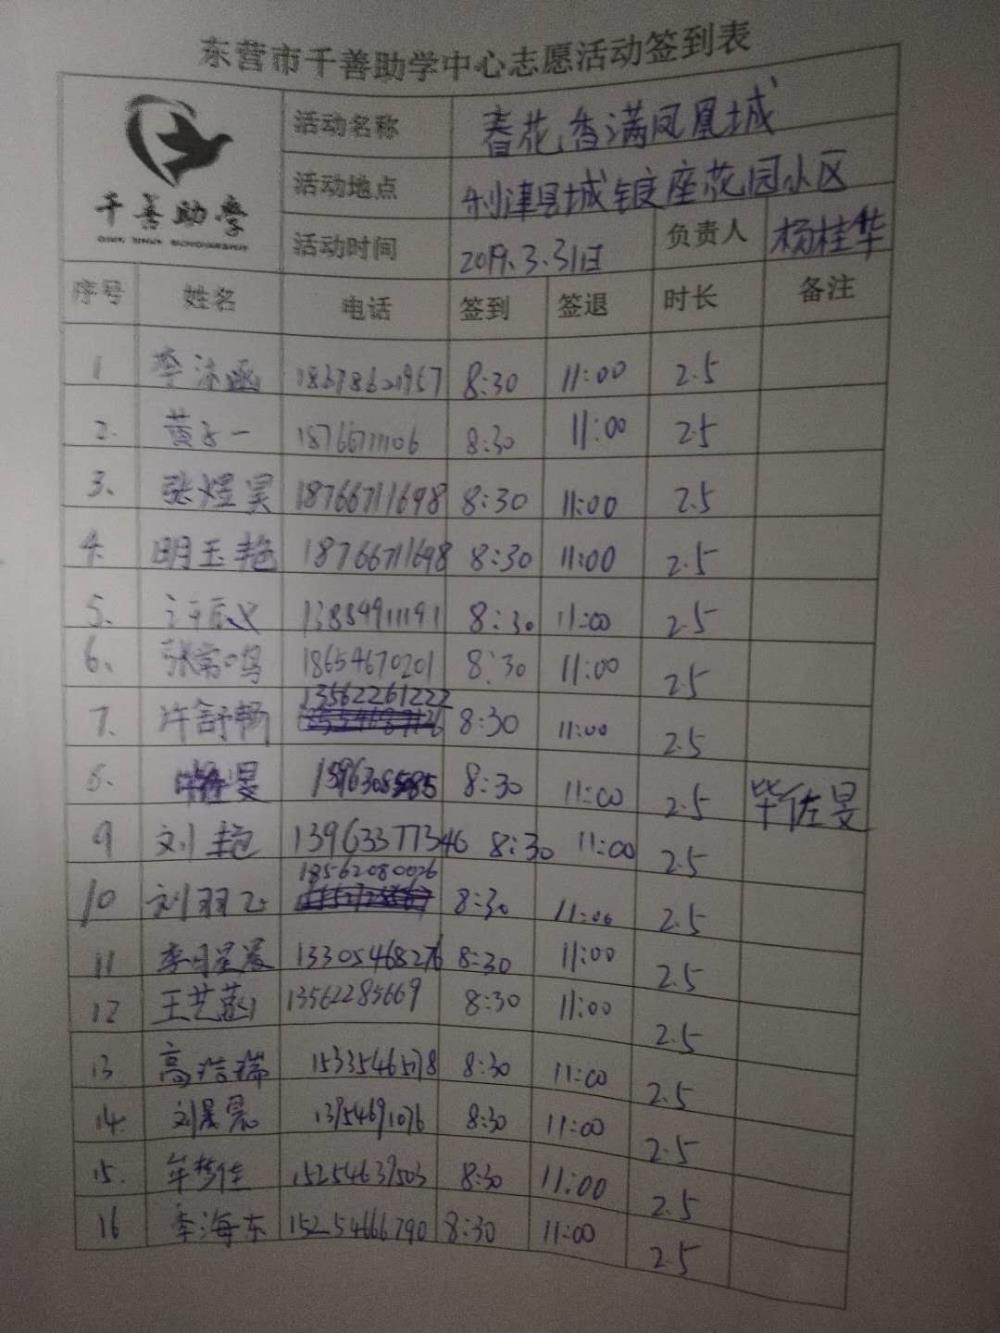 东营市千善助学中心志愿活动签到表
千善助学
活动名称 春花香满凤凰城
活动地点 利津县城镀座花园小区
活动时间 2019.3.31日 负责人 杨桂华
序号 姓名 电话 签到 签退 时长 备注
1 李 涵 18678621967 8:30 11:00 2.5
2. 黄子一 18766711106 8:30 11:00 2.5
3、 张煜昊 18766711698 8:30 11:00 2.5
4. 明玉艳 18766711698 8:30 11:00 2.5
5、 许辰义 13854911191 8:30 11:00 2.5
6、 张常鸣 18654670201 8:30 11:00 2.5
7、 许舒畅 13562261222 8:30 11:00 2.5
8、 8:30 11:00 2.5 毕佐旻
9 刘艳 13963377346 8:30 11:00 2.5
10 刘羽飞 18562080026 8:30 11:00 2.5
11 李 星 13305468276 8:30 11:00 2.5
12 王艺菡 13562285669 8:30 11:00 2.5
13 高 瑞 8:30 11:00 2.5
14. 刘昊宸 8:30 11:00 2.5
15. 牟梦佳 15254637503 8:30 11:00 2.5
16 李海东 15254666790 8:30 11:00 2.5